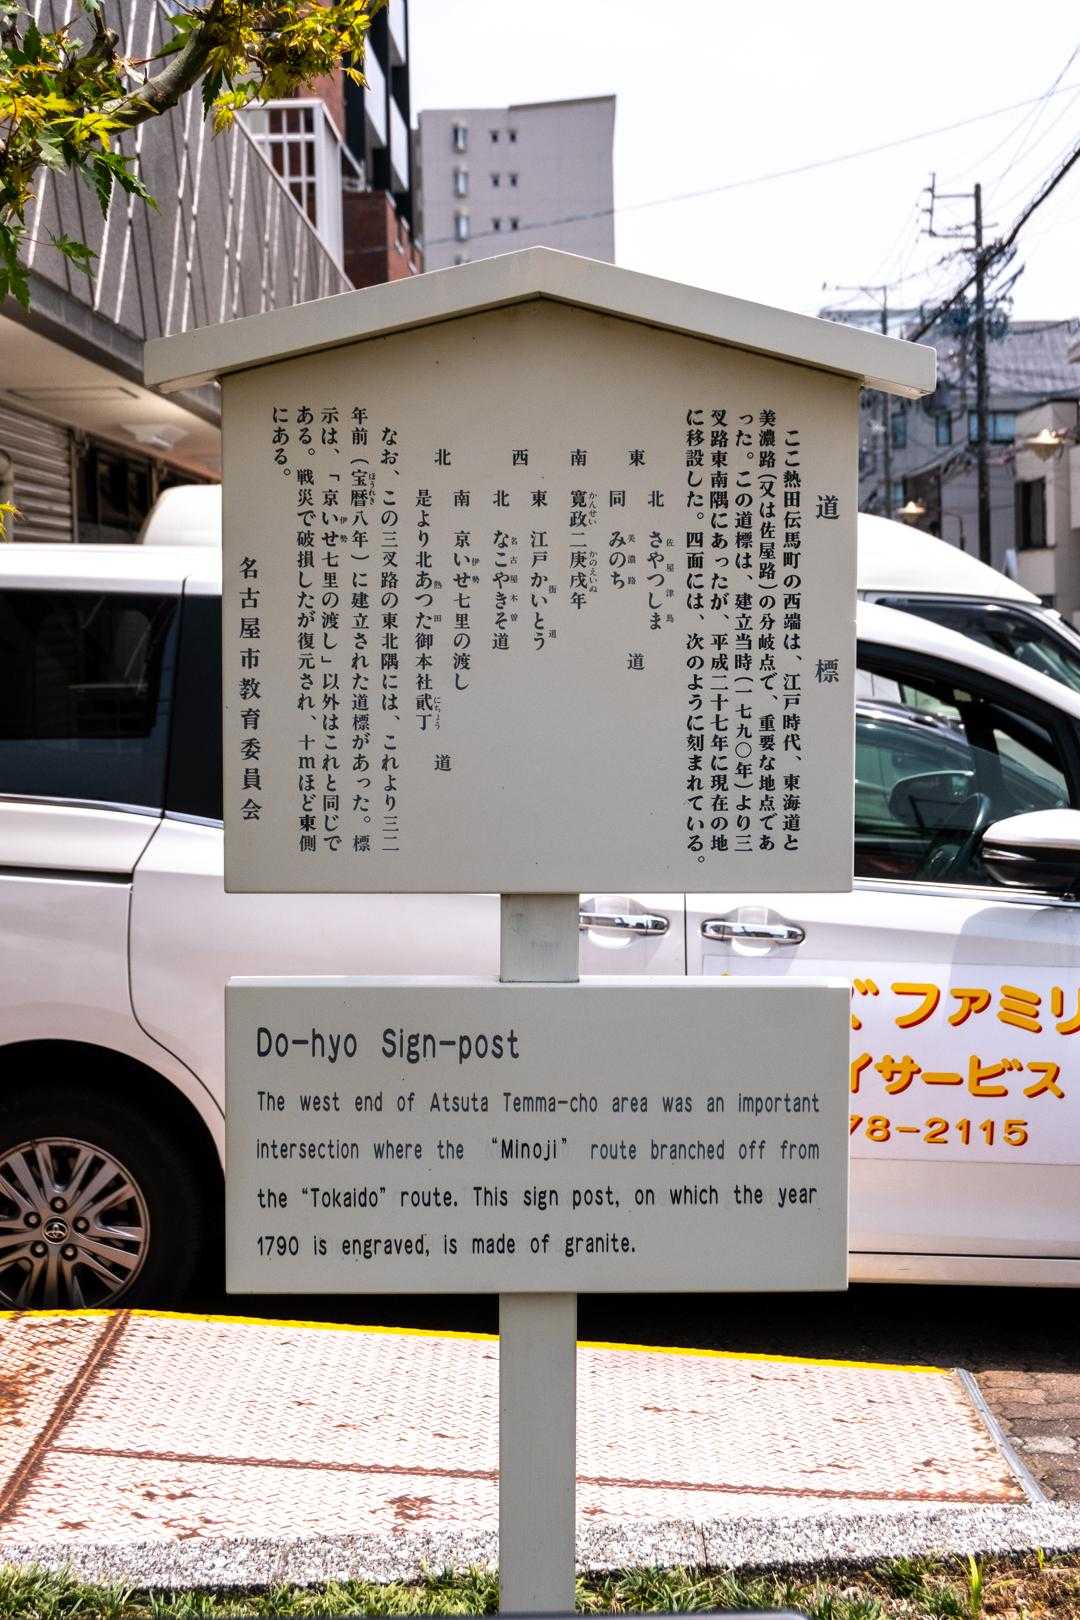 道標
ここ熱田伝馬町の西端は、江戸時代、東海道と
美濃路(又は佐屋路)の分岐点で、重要な地点であ
った。この道標は、建立当時(一七九〇年)より三
叉路東南隅にあったが、平成二十七年に現在の地
に移設した。四面には、次のように刻まれている。
東 北 さやつしま 佐屋津島
同 みのち 美濃路 道
南 寛政二庚戌年 かんせい かのえいぬ
西 東 江戸かいとう 街道
北 なこやきそ道 名古屋木曽
北 南 京いせ七里の渡し 伊勢
是より北あつた御本社貮丁 熱田 にちょう 道
なお、この三叉路の東北隅には、これより三二
年前(宝暦八年)に建立された道標があった。標 ほうれき
示は、「京いせ七里の渡し」以外はこれと同じで 伊勢
ある。戦災で破損したが復元され、十mほど東側
にある。
名古屋市教育委員会
Do-hyo Sign-post
The west end of Atsuta Temma-cho area was an important
intersection where the “Minoji” route branched off from
the “Tokaido” route. This sign post, on which the year
1790 is engraved, is made of granite.
ズファミリ
イサービス
78-2115